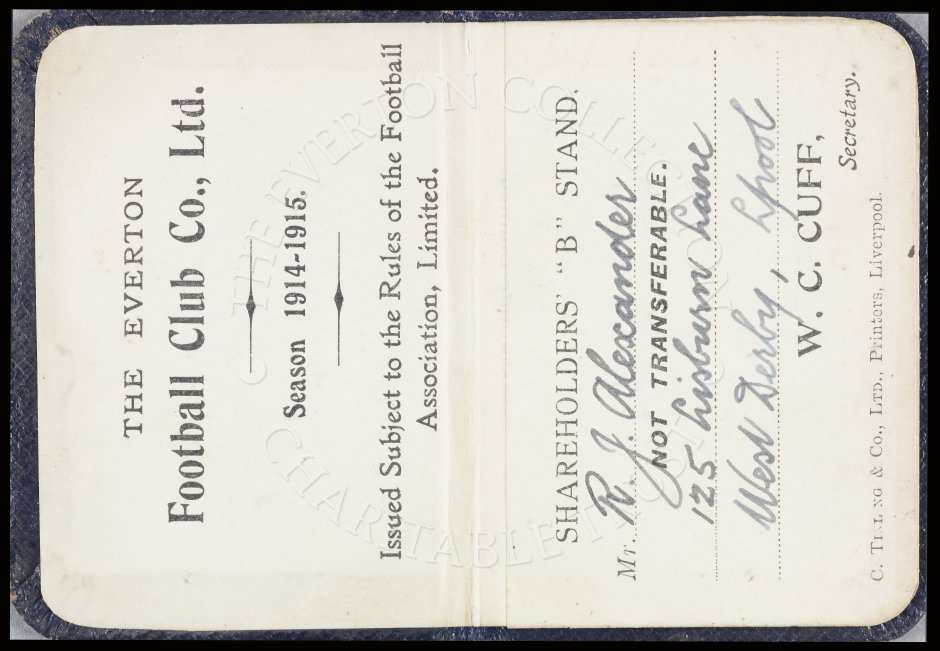 THE EVERTON
Football Club Co., Ltd.
Season 1914-1915.
Issued Subject to the Rules of the Football
Association, Limited.
SHAREHOLDERS' "B" STAND.
Mr. R. J. Alexander
NOT TRANSFERABLE.
125 Lisburn Lane
West Derby, L'pool
W. C. CUFF,
Secretary.
C. TINLING & CO., LTD., Printers, Liverpool.
THE EVERTON COLLECTION
CHARITABLE TRUST